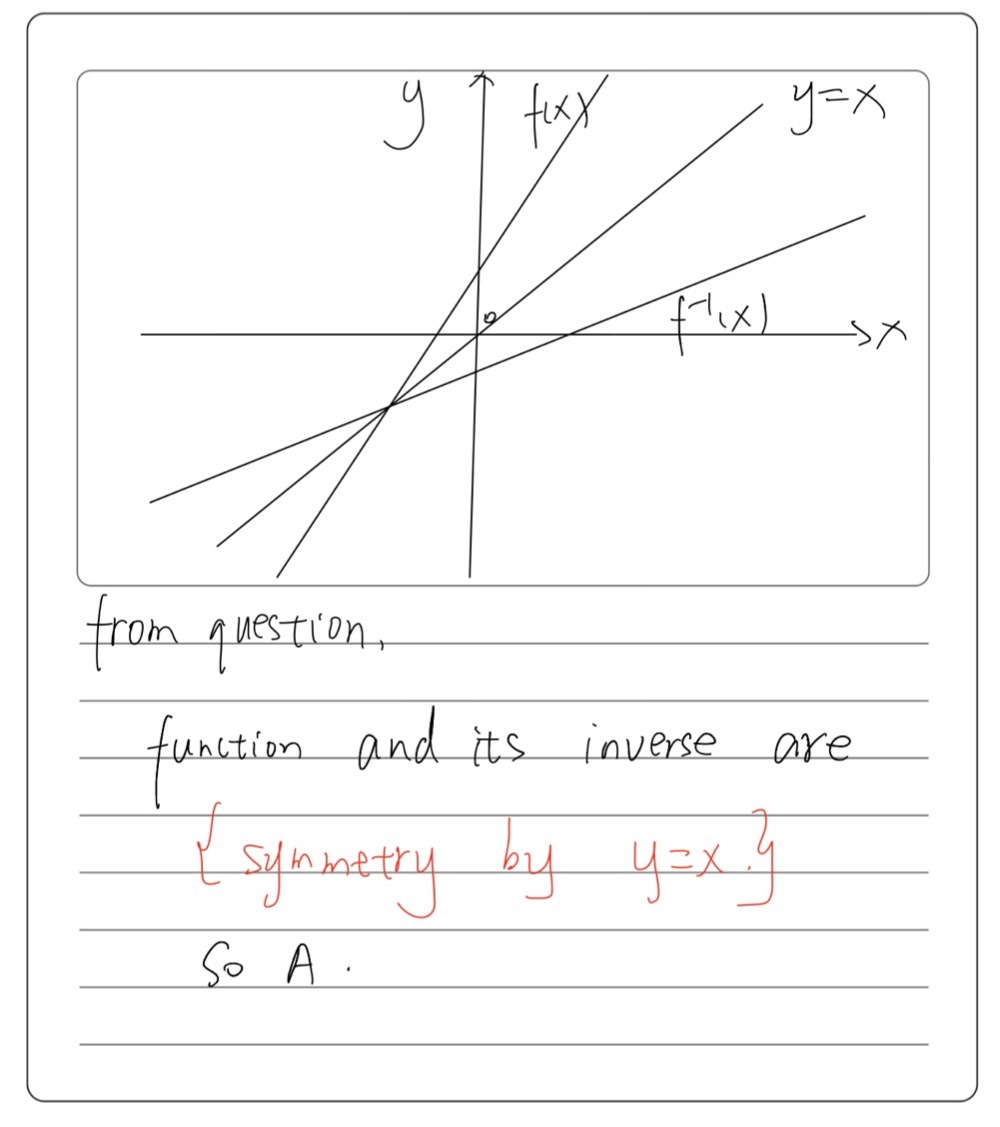 y f(x) y=x
o
f⁻¹(x)
x
from question,
function and its inverse are
{symmetry by y=x.}
So A.